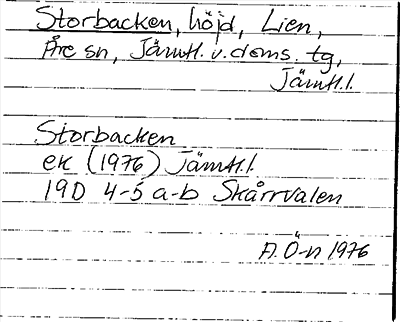 Storbacken, höjd, Lien,
Åre sn, Jämtl. v. doms. tg,
Jämtl. l.
Storbacken
ek (1976) Jämtl. l.
19D 4-5 a-b Skårrvalen
A. Ö-n 1976